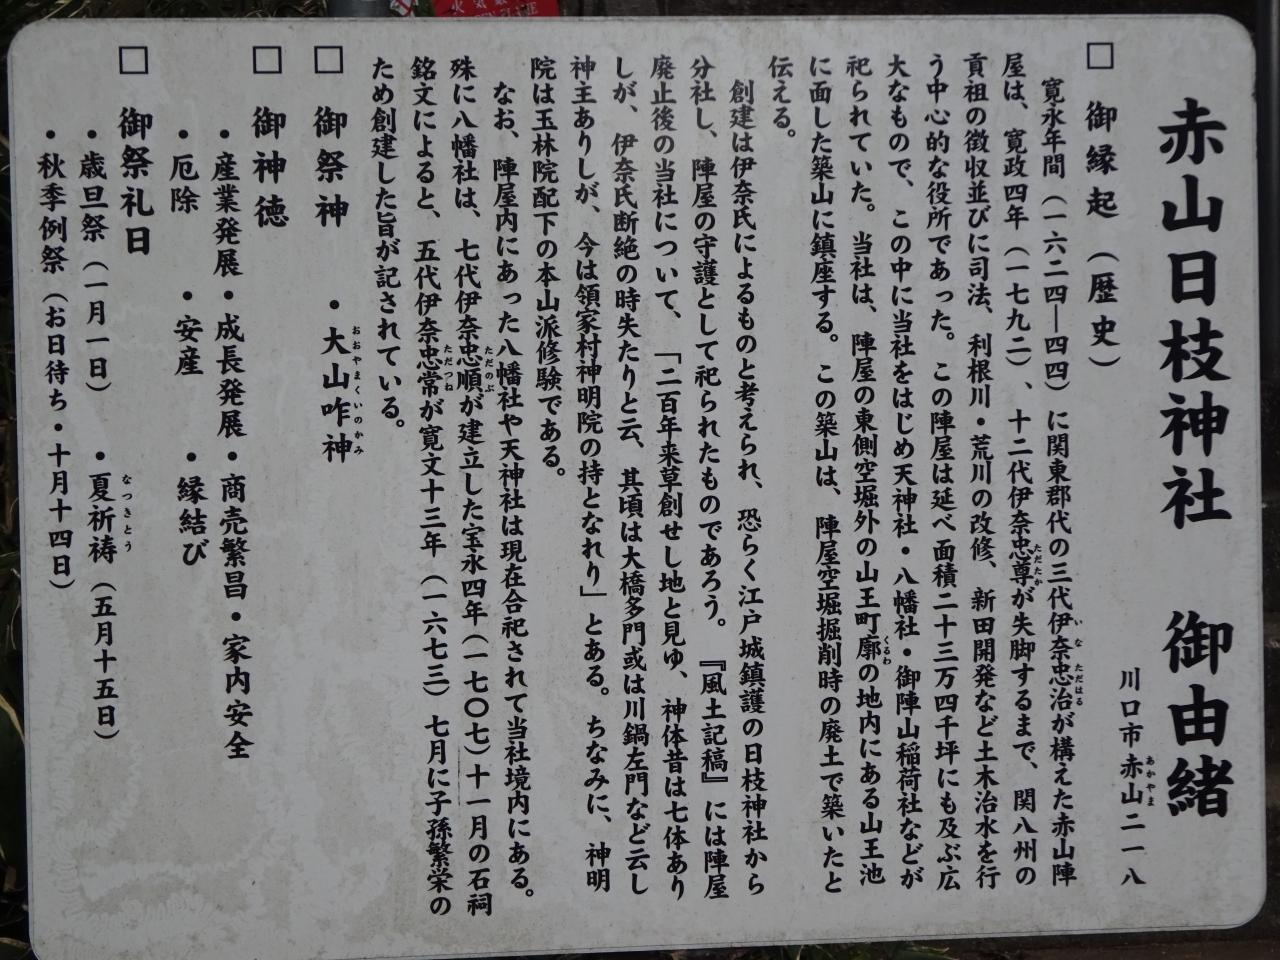 赤山日枝神社 御由緒
川口市赤山二一八
□ 御縁起(歴史)
寛永年間(一六二四―四四)に関東郡代の三代伊奈忠治が構えた赤山陣
屋は、寛政四年(一七九二)、十二代伊奈忠尊が失脚するまで、関八州の
貢祖の徴収並びに司法、利根川・荒川の改修、新田開発など土木治水を行
う中心的な役所であった。この陣屋は延べ面積二十三万四千坪にも及ぶ広
大なもので、この中に当社をはじめ天神社・八幡社・御陣山稲荷社などが
祀られていた。当社は、陣屋の東側空堀外の山王町廓の地内にある山王池
に面した築山に鎮座する。この築山は、陣屋空堀掘削時の廃土で築いたと
伝える。
創建は伊奈氏によるものと考えられ、恐らく江戸城鎮護の日枝神社から
分社し、陣屋の守護として祀られたものであろう。『風土記稿』には陣屋
廃止後の当社について、「二百年来草創せし地と見ゆ、神体昔は七体あり
しが、伊奈氏断絶の時失たりと云、其頃は大橋多門或は川鍋左門など云し
神主ありしが、今は領家村神明院の持となれり」とある。ちなみに、神明
院は玉林院配下の本山派修験である。
なお、陣屋内にあった八幡社や天神社は現在合祀されて当社境内にある。
殊に八幡社は、七代伊奈忠順が建立した宝永四年(一七〇七)十一月の石祠
銘文によると、五代伊奈忠常が寛文十三年(一六七三)七月に子孫繁栄の
ため創建した旨が記されている。
□ 御祭神 ・大山咋神
□ 御神徳
・産業発展・成長発展・商売繁昌・家内安全
・厄除 ・安産 ・縁結び
□ 御祭礼日
・歳旦祭(一月一日) ・夏祈祷(五月十五日)
・秋季例祭(お日待ち・十月十四日)